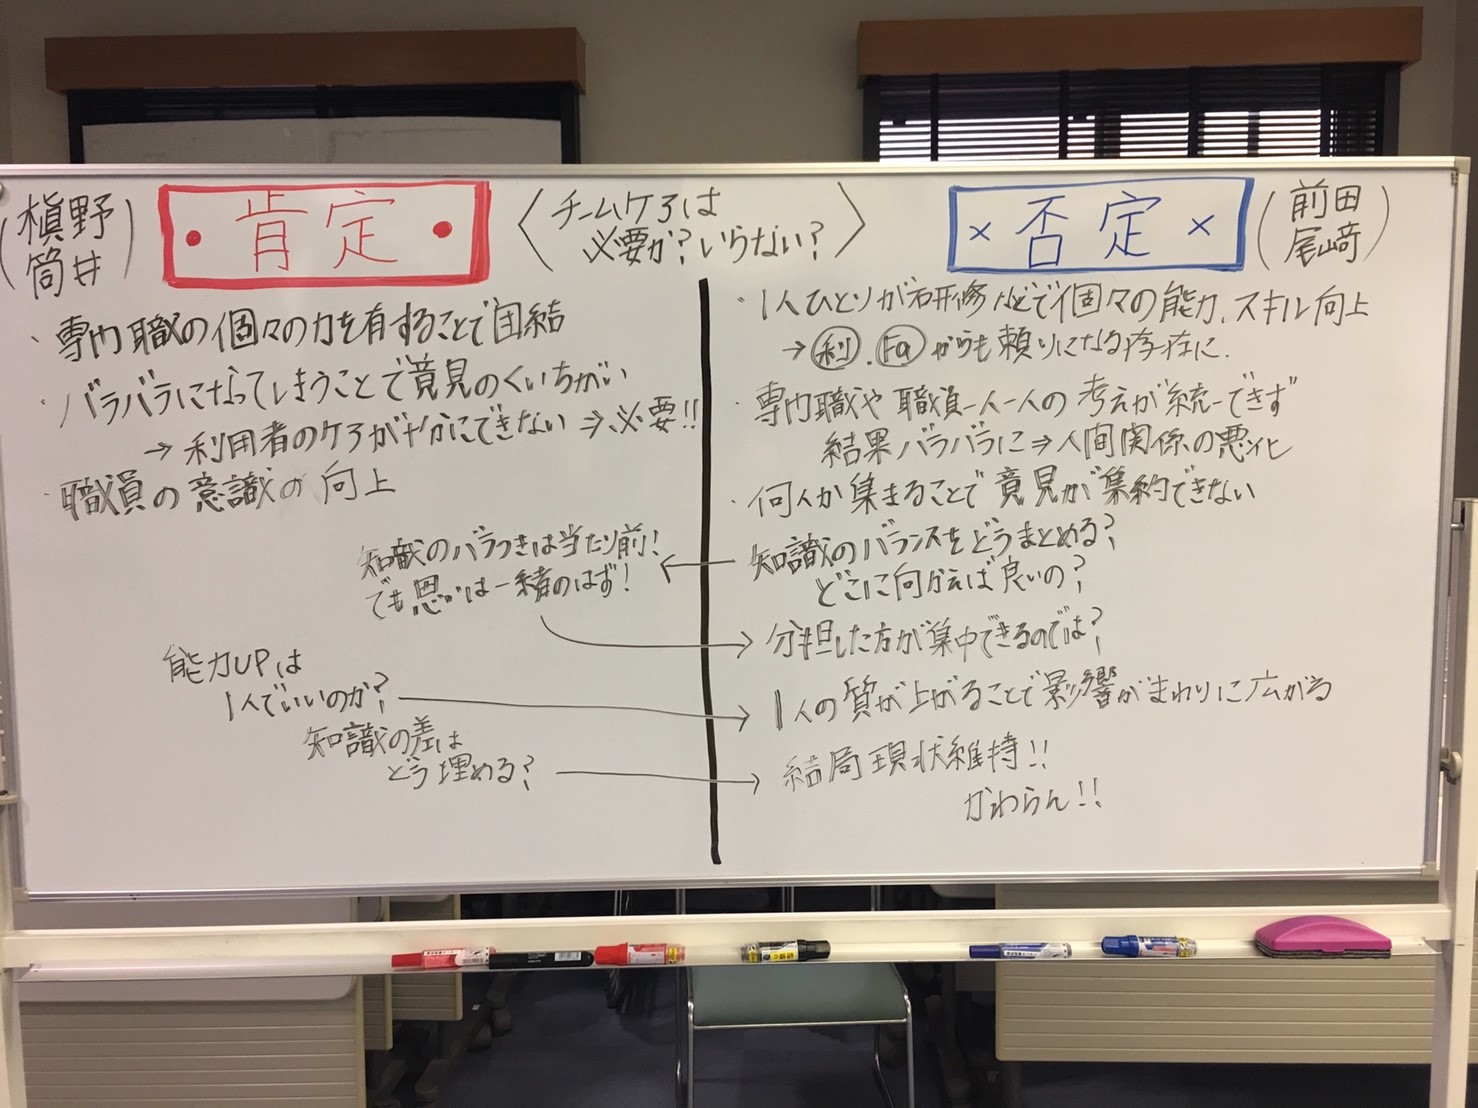 〈チームケアは
必要か？いらない？〉
(槇野
筒井)
・肯定・
・専門職の個々の力を有することで団結
・バラバラになってしまうことで意見のくいちがい
→利用者のケアが十分にできない⇒必要!!
・職員の意識の向上
知識のバラつきは当たり前！
でも思いは一緒のはず！
能力UPは
1人でいいのか？
知識の差は
どう埋める？
×否定×
(前田
尾﨑)
・1人ひとりが研修などで個々の能力、スキル向上
→利、Faからも頼りになる存在に.
・専門職や職員一人一人の考えが統一できず
結果バラバラに⇒人間関係の悪化
・何人か集まることで意見が集約できない
知識のバランスをどうまとめる？
どこに向かえば良いの？
分担した方が集中できるのでは？
1人の質が上がることで影響がまわりに広がる
結局現状維持!!
かわらん!!